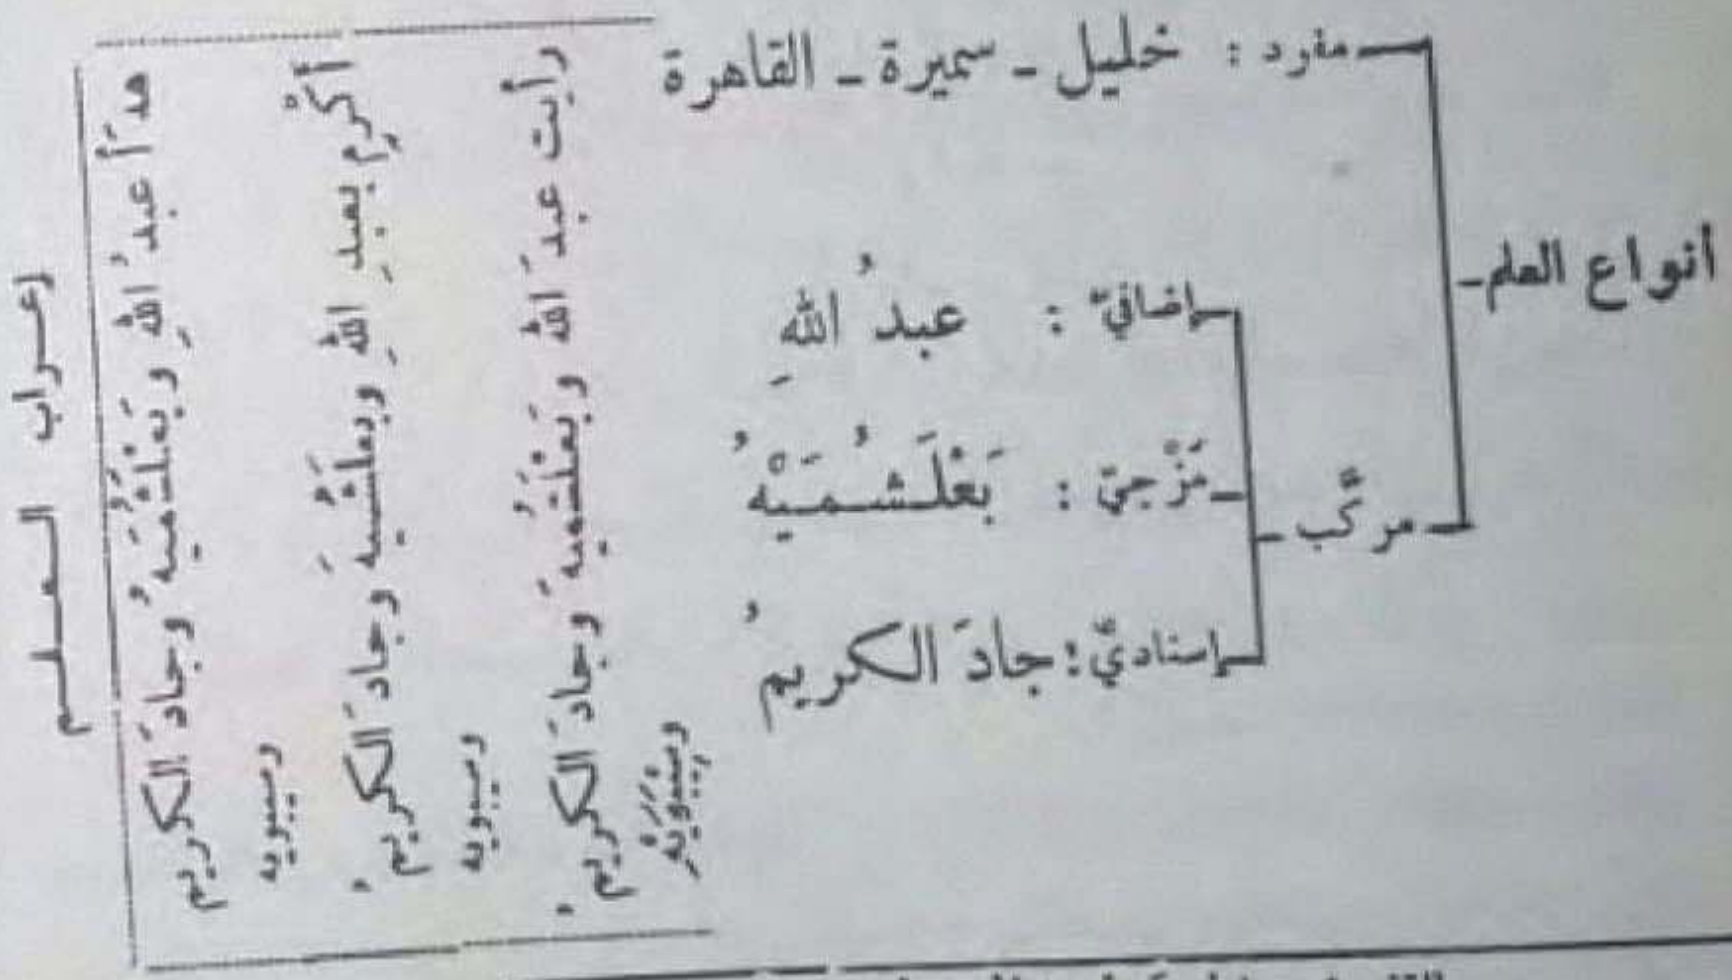 أنواع العلم
مفرد : خليل - سميرة - القاهرة
مركَّب
إضافيّ : عبدُ اللهِ
مَزْجيّ : بَعْلَشُمَيْهُ
إسناديّ : جادَ الكريمُ
إعراب العلم
هدَأ عبدُ اللهِ وبَعْلَشُمَيهُ وجادَ الكريم
وسيبويه
أكْرِم بعبدِ اللهِ وبعلَشُميهَ وجادَ الكريمُ
وسيبويه
رأيت عبدَ الله وبَعْلَشُميهَ وجادَ الكريمُ
وسِيْبَوَيْهِ